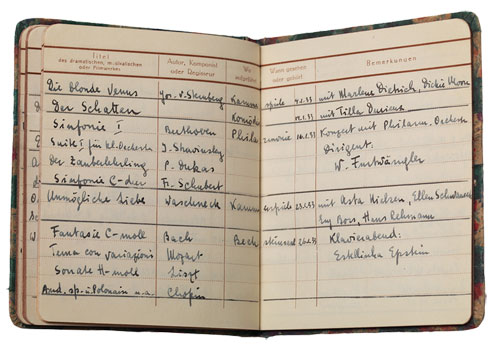 Titel des dramatischen, musikalischen oder Filmwerkes Autor, Komponist oder Regisseur Wo aufgeführt Wann gesehen oder gehört Bemerkungen
Die blonde Venus Jos. v. Sternberg Kammerspiele 4.2.33 mit Marlene Dietrich, Dickie Moore
Der Schatten Komödie 2.33 mit Tilla Durieux
Sinfonie I Beethoven Philharmonie 2.33 Konzert mit Philharm. Orchester
Suite I für kl. Orchester J. Stravinsky Dirigent:
Der Zauberlehrling P. Dukas W. Furtwängler
Sinfonie C-dur Fr. Schubert
Unmögliche Liebe Waschneck Kammerspiele 23.2.33 mit Asta Nielsen, Ellen Schwanneke
Ery Bos, Hans Rehmann
Fantasie C-moll Bach Bechsteinsaal 26.2.33 Klavierabend:
Tema con variazioni Mozart Epstein
Sonate H-moll Liszt
And. sp. u. Polonaise u.a. Chopin